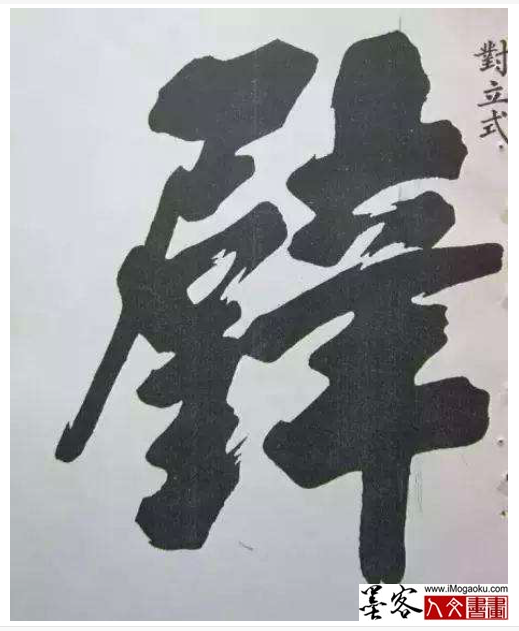 對立式
辟
墨客
www.iMogaoku.com
人文書畫